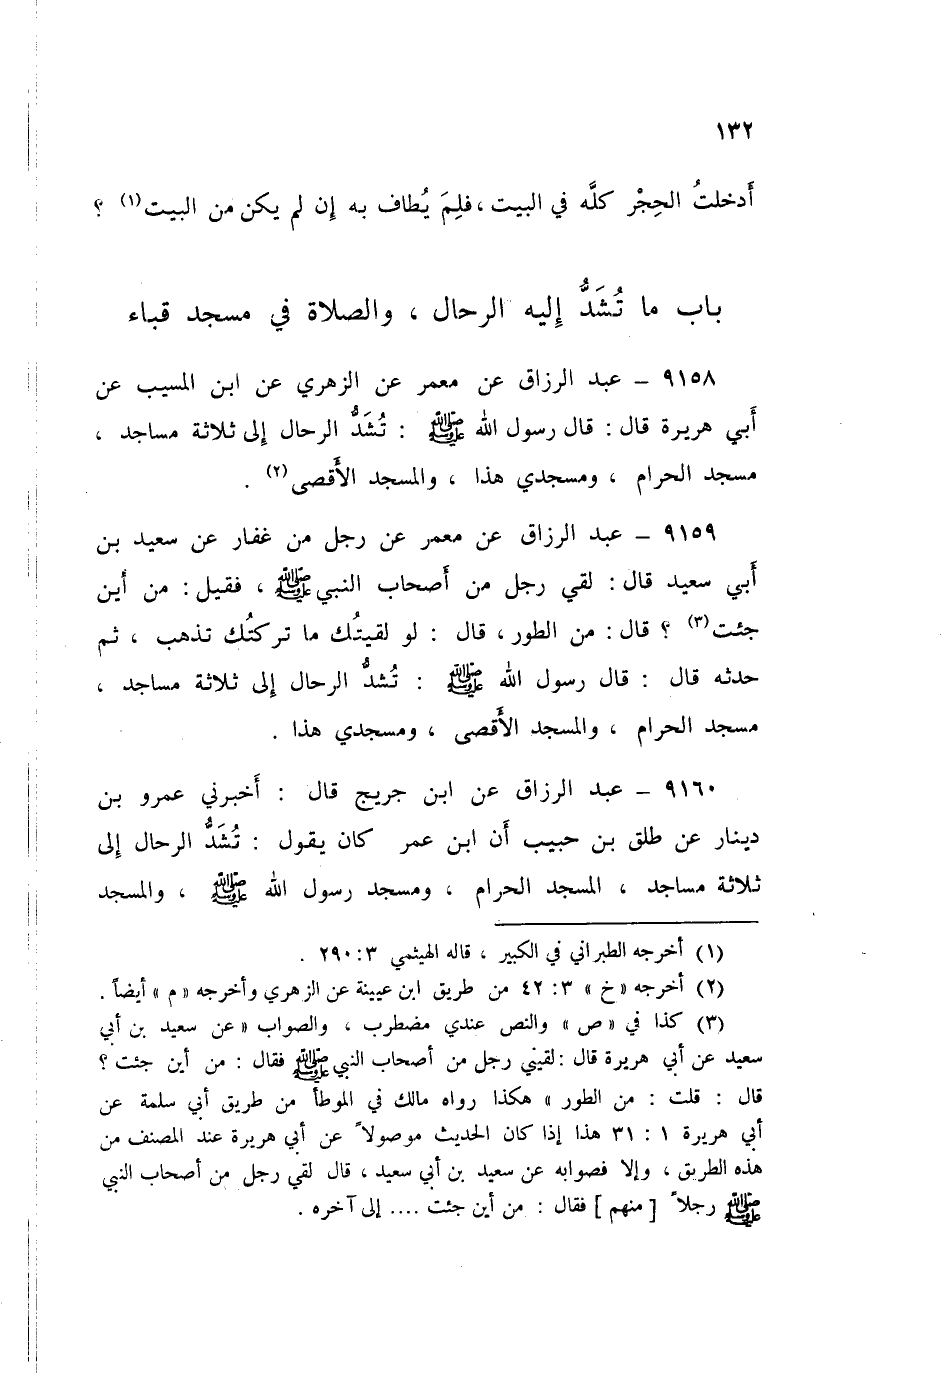 ١٣٢
أَدخلتُ الحِجْر كلَّه في البيت ، فلِمَ يُطاف به إِن لم يكن من البيت (١) ؟
باب ما تُشَدُّ إِليه الرحال ، والصلاة في مسجد قباء
٩١٥٨ – عبد الرزاق عن معمر عن الزهري عن ابن المسيب عن
أَبي هريرة قال : قال رسول الله ﷺ : تُشَدُّ الرحال إِلى ثلاثة مساجد ،
مسجد الحرام ، ومسجدي هذا ، والمسجد الأَقصى (٢) .
٩١٥٩ – عبد الرزاق عن معمر عن رجل من غفار عن سعيد بن
أَبي سعيد قال : لقي رجل من أَصحاب النبي ﷺ ، فقيل : من أَين
جئت (٣) ؟ قال : من الطور ، قال : لو لقيتُك ما تركتُك تذهب ، ثم
حدثه قال : قال رسول الله ﷺ : تُشدُّ الرحال إِلى ثلاثة مساجد ،
مسجد الحرام ، والمسجد الأَقصى ، ومسجدي هذا .
٩١٦٠ – عبد الرزاق عن ابن جريج قال : أَخبرني عمرو بن
دينار عن طلق بن حبيب أَن ابن عمر كان يقول : تُشَدُّ الرحال إِلى
ثلاثة مساجد ، المسجد الحرام ، ومسجد رسول الله ﷺ ، والمسجد
(١) أخرجه الطبراني في الكبير ، قاله الهيثمي ٣ : ٢٩٠ .
(٢) أخرجه « خ » ٣ : ٤٢ من طريق ابن عيينة عن الزهري وأخرجه « م » أيضاً .
(٣) كذا في « ص » والنص عندي مضطرب ، والصواب « عن سعيد بن أبي
سعيد عن أبي هريرة قال : لقيني رجل من أصحاب النبي ﷺ فقال : من أين جئت ؟
قال : قلت : من الطور » هكذا رواه مالك في الموطأ من طريق أبي سلمة عن
أبي هريرة ١ : ٣١ هذا إذا كان الحديث موصولاً عن أبي هريرة عند المصنف من
هذه الطريق ، وإلا فصوابه عن سعيد بن أبي سعيد ، قال لقي رجل من أصحاب النبي
ﷺ رجلاً [ منهم ] فقال : من أين جئت .... إلى آخره .